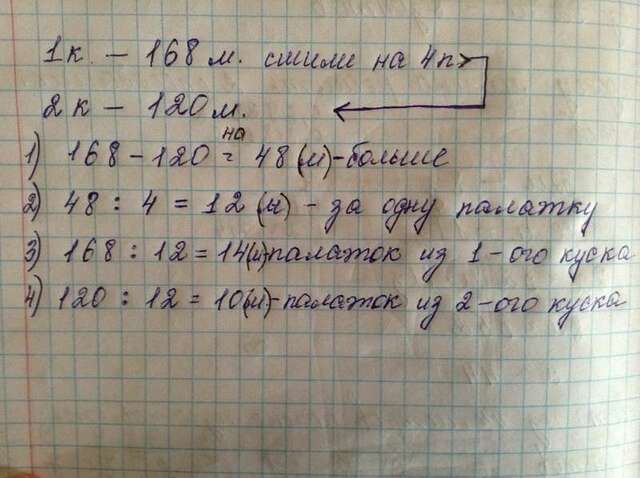 1к. - 168 м. сшили на 4п>
2к - 120 м.
1) 168 - 120 = на 48 (м) - больше
2) 48 : 4 = 12 (м) - за одну палатку
3) 168 : 12 = 14(м)-палаток из 1-ого куска
4) 120 : 12 = 10(м)-палаток из 2-ого куска